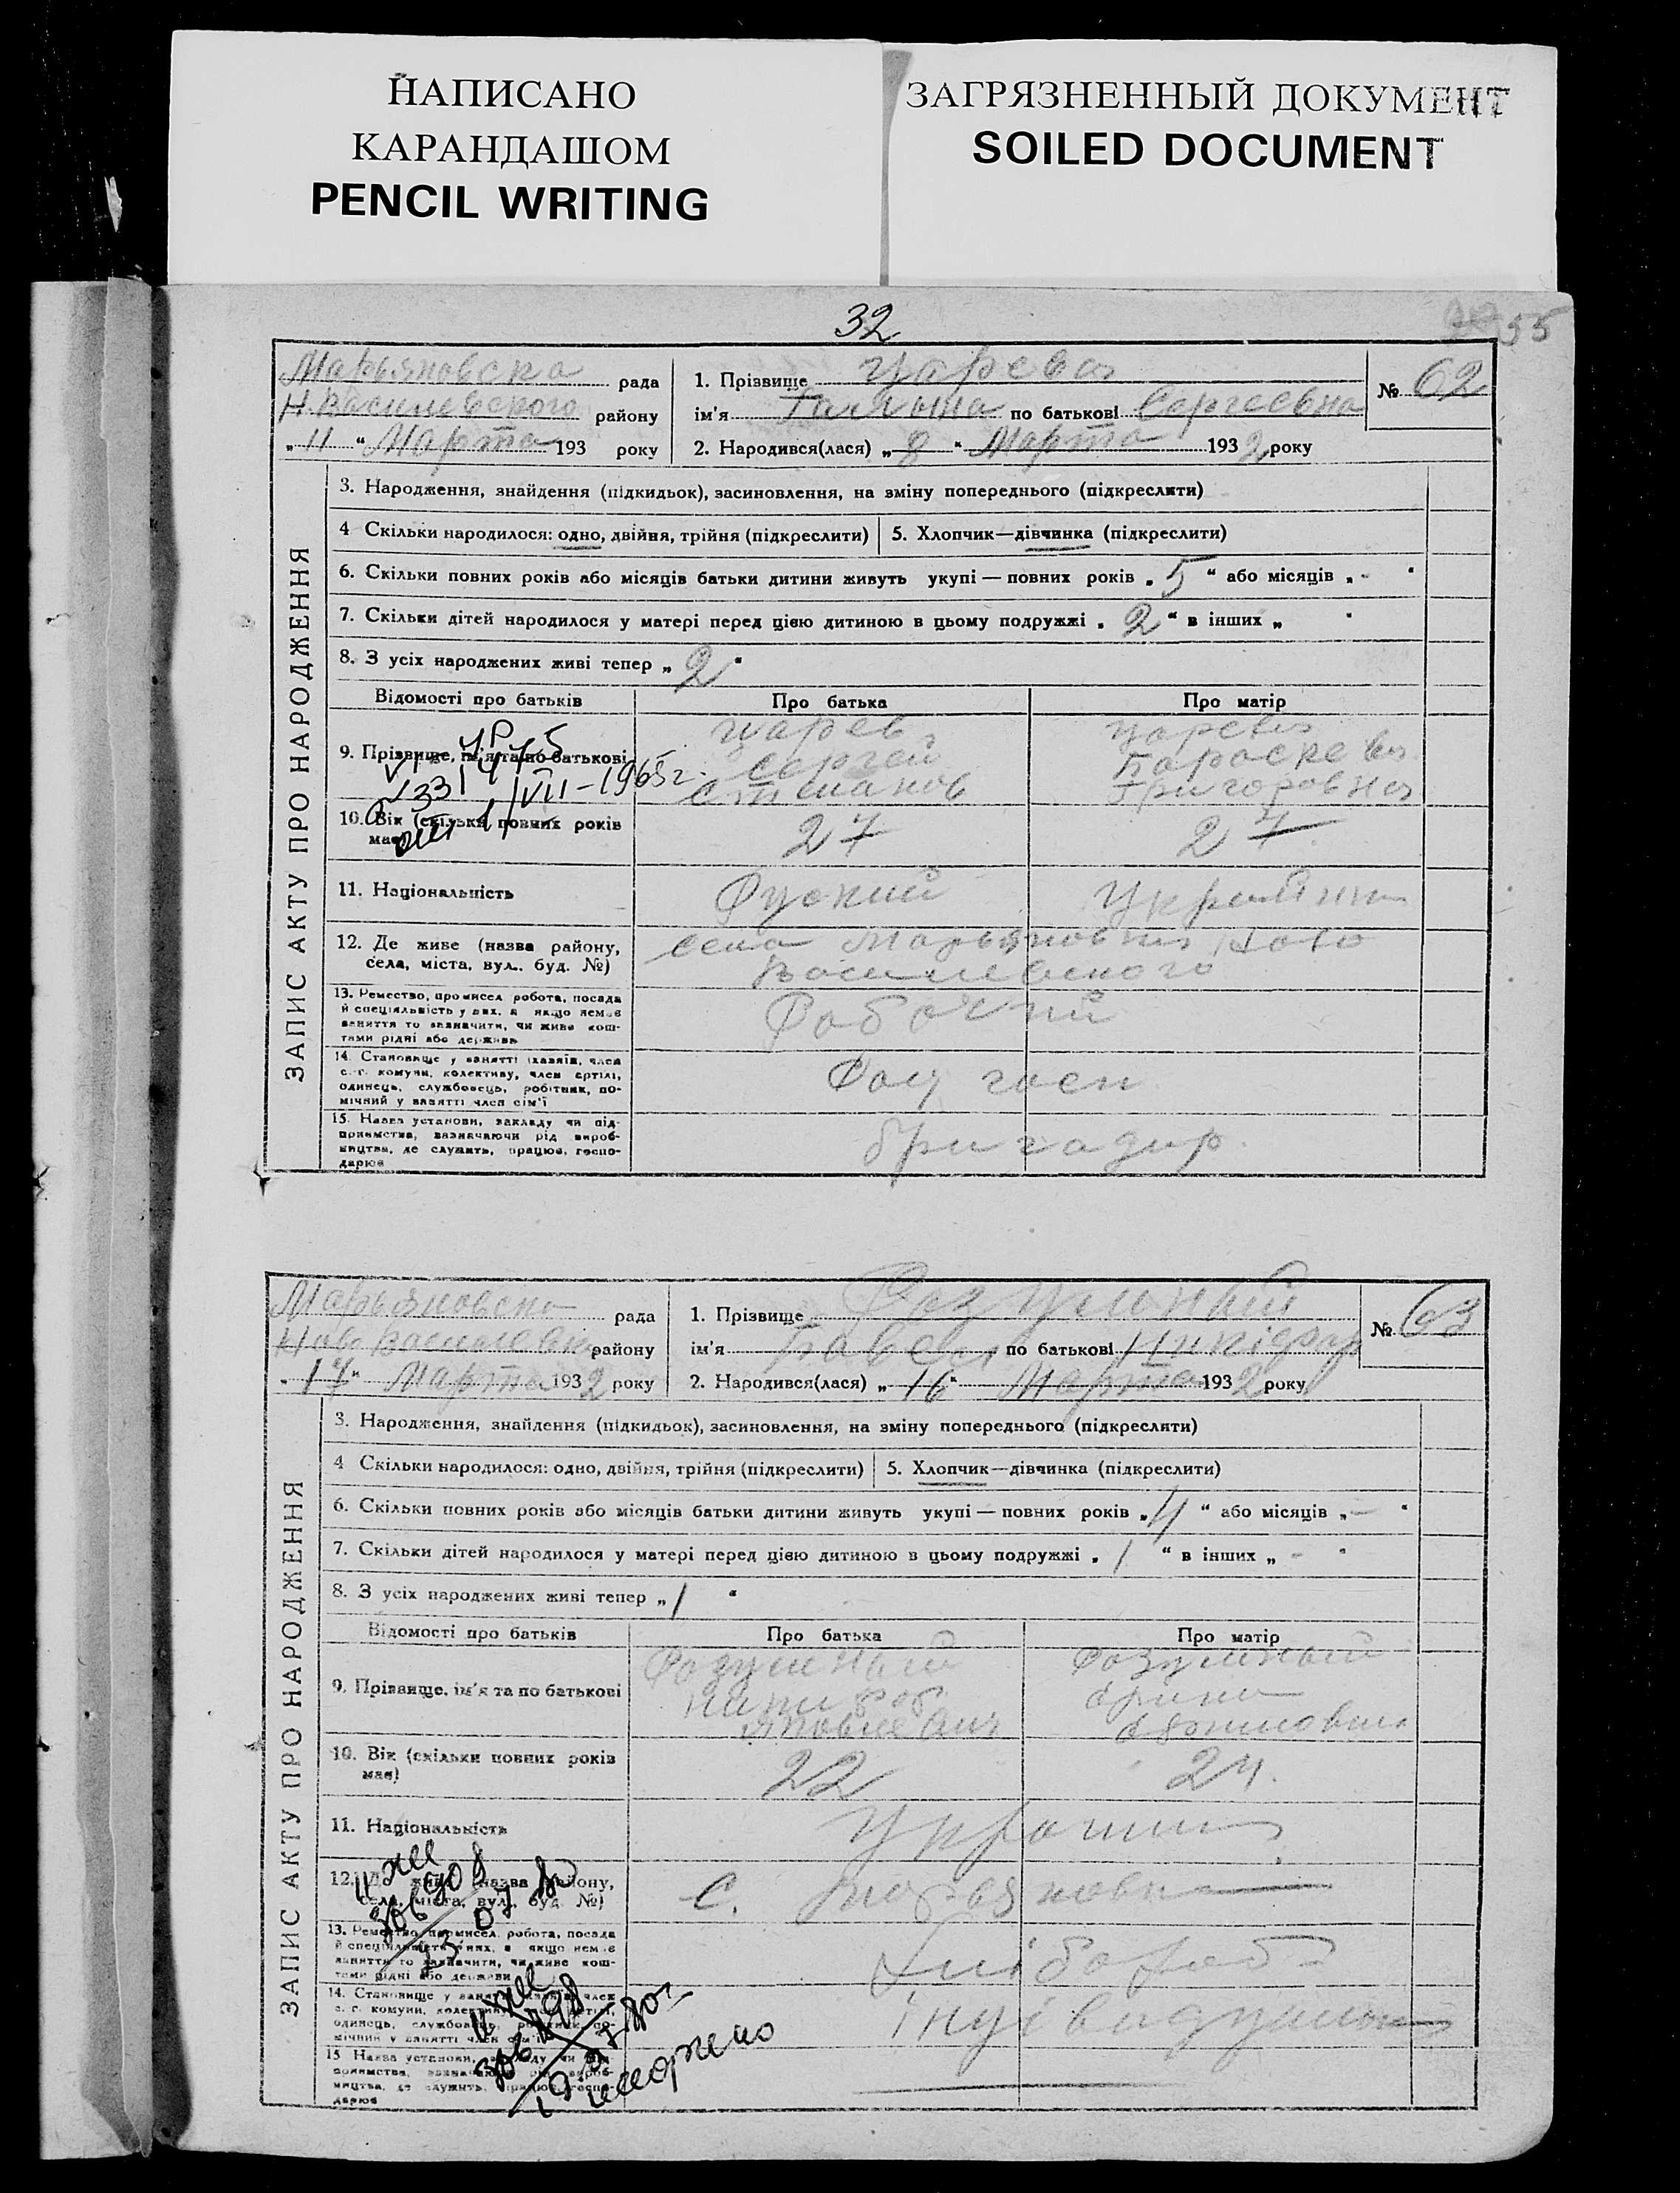 НАПИСАНО
КАРАНДАШОМ
PENCIL WRITING
ЗАГРЯЗНЕННЫЙ ДОКУМЕНТ
SOILED DOCUMENT
32
55
Марьяновска рада
Н. Василевского району
„11“ Марта 193 року
1. Прізвище Царева
ім'я Галына по батькові Сергеевна
2. Народився(лася) „8“ Марта 1932 року
№ 62
ЗАПИС АКТУ ПРО НАРОДЖЕННЯ
3. Народження, знайдення (підкидьок), засиновлення, на зміну попереднього (підкреслити)
4 Скільки народилося: одно, двійня, трійня (підкреслити)
5. Хлопчик—дівчинка (підкреслити)
6. Скільки повних років або місяців батьки дитини живуть укупі — повних років „5“ або місяців „-“
7. Скільки дітей народилося у матері перед цією дитиною в цьому подружжі „2“ в інших „ “
8. З усіх народжених живі тепер „2“
Відомості про батьків
Про батька
Про матір
9. Прізвище, ім'я та по батькові
Царев
Сергей
Степанов
Царева
Пароскева
Григоровна
VII-1965г.
10. Вік (скільки повних років має)
27
27
11. Національність
Руский
Украйнка
12. Де живе (назва району,
села, міста, вул., буд. №)
села Марьяновка Ново
Василевского
13. Ремество, промисел робота, посада
й спеціяльність у них, а якщо немає
заняття то зазначити, чи живе кош-
тами рідні або держави
Рабочий
14. Становище у занятті (хазяїн, член
с.-г. комуни, колективу, член артілі,
одинець, службовець, робітник, по-
мічний у занятті член сім'ї
Рад госп
15. Назва установи, закладу чи під-
приємства, зазначаючи рід вироб-
ництва, де служить, працює, госпо-
дарює
бригадир.
Марьяновска рада
Ново Василевка району
„17“ Марта 1932 року
1. Прізвище Розумный
ім'я Павел по батькові Никіфор
2. Народився(лася) „16“ Марта 1932 року
№ 63
ЗАПИС АКТУ ПРО НАРОДЖЕННЯ
3. Народження, знайдення (підкидьок), засиновлення, на зміну попереднього (підкреслити)
4 Скільки народилося: одно, двійня, трійня (підкреслити)
5. Хлопчик—дівчинка (підкреслити)
6. Скільки повних років або місяців батьки дитини живуть укупі — повних років „4“ або місяців „-“
7. Скільки дітей народилося у матері перед цією дитиною в цьому подружжі „1“ в інших „-“
8. З усіх народжених живі тепер „1“
Відомості про батьків
Про батька
Про матір
9. Прізвище, ім'я та по батькові
Розумный
Никифор
Яковлевич
Розумный
Арина
10. Вік (скільки повних років має)
22
24.
11. Національність
12. Де живе (назва району,
села, міста, вул., буд. №)
с. Марьяновка
13. Ремество, промисел, робота, посада
й спеціяльність у них, а якщо немає
заняття то зазначити, чи живе кош-
тами рідні або держави
Хлібороб
14. Становище у занятті (хазяїн, член
с.-г. комуни, колективу, член артілі,
одинець, службовець, робітник, по-
мічний у занятті член сім'ї
15 Назва установи, закладу чи під-
приємства, зазначаючи рід вироб-
ництва, де служить, працює, госпо-
дарює